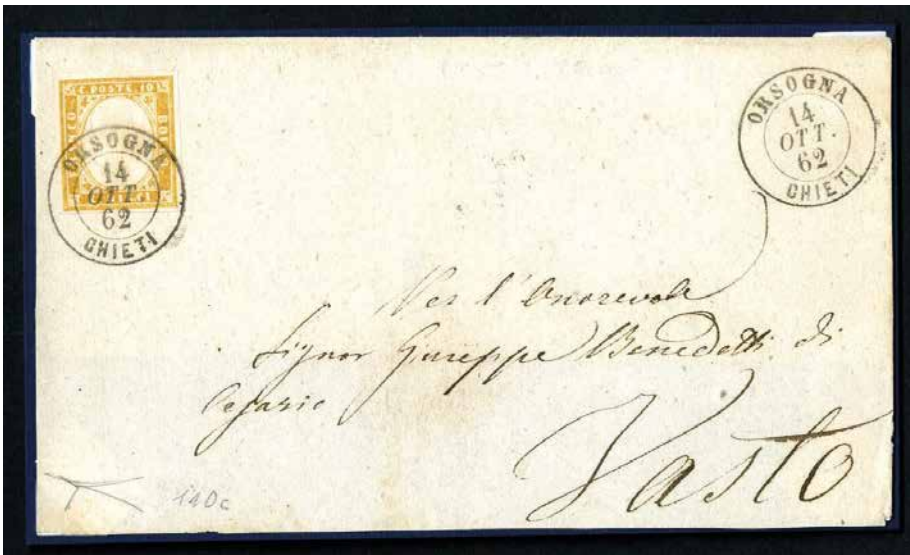 C. POSTE 10
ORSOGNA
14
OTT.
62
CHIETI
ORSOGNA
14
OTT.
62
CHIETI
Per l'Onorevole
Signor Giuseppe Benedetti di
Cesario
Vasto
14Dc